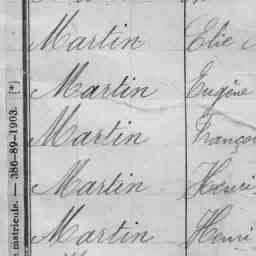 Martin Elie
Martin Eugène
Martin François
Martin Henri
Martin Henri
matricule. — 386-89-1903. [*]